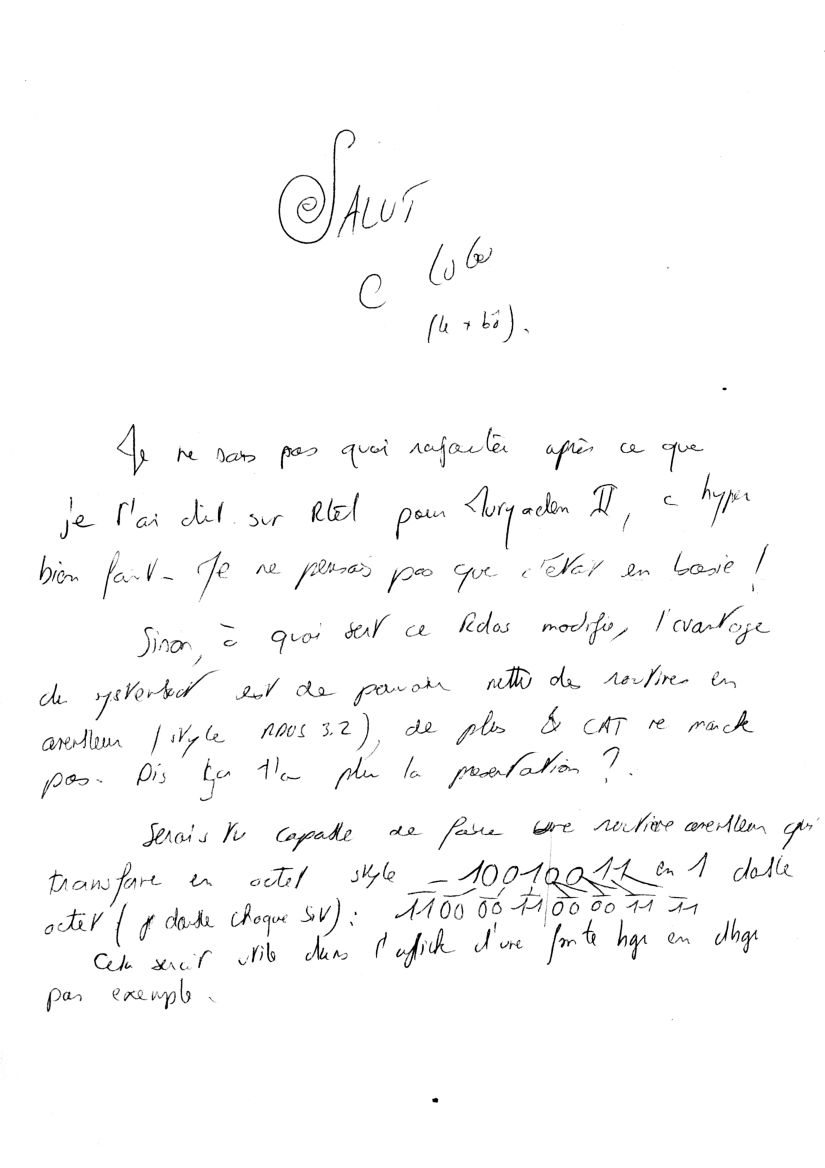 SALUT
C
Je ne sais pas quoi rajouter après ce que
je t'ai dit sur Rtel pour II, c hyper
bien fait - Je ne pensais pas que c'était en basic !
Sinon, à quoi sert ce Rdos modifié, l'avantage
du est de pouvoir mettre des routines en
assembleur (style RDOS 3.2), de plus & CAT ne marche
pas. Dis ça t'a plu la présentation ?.
Serais tu capable de faire une routine assembleur qui
transfare en octet style - 10010011 en 1 double
octet ( je double chaque bit) : 1100 00 11 00 00 11 11
Cela serait utile dans l'affich d'une fonte hgr en dhgr
par exemple.